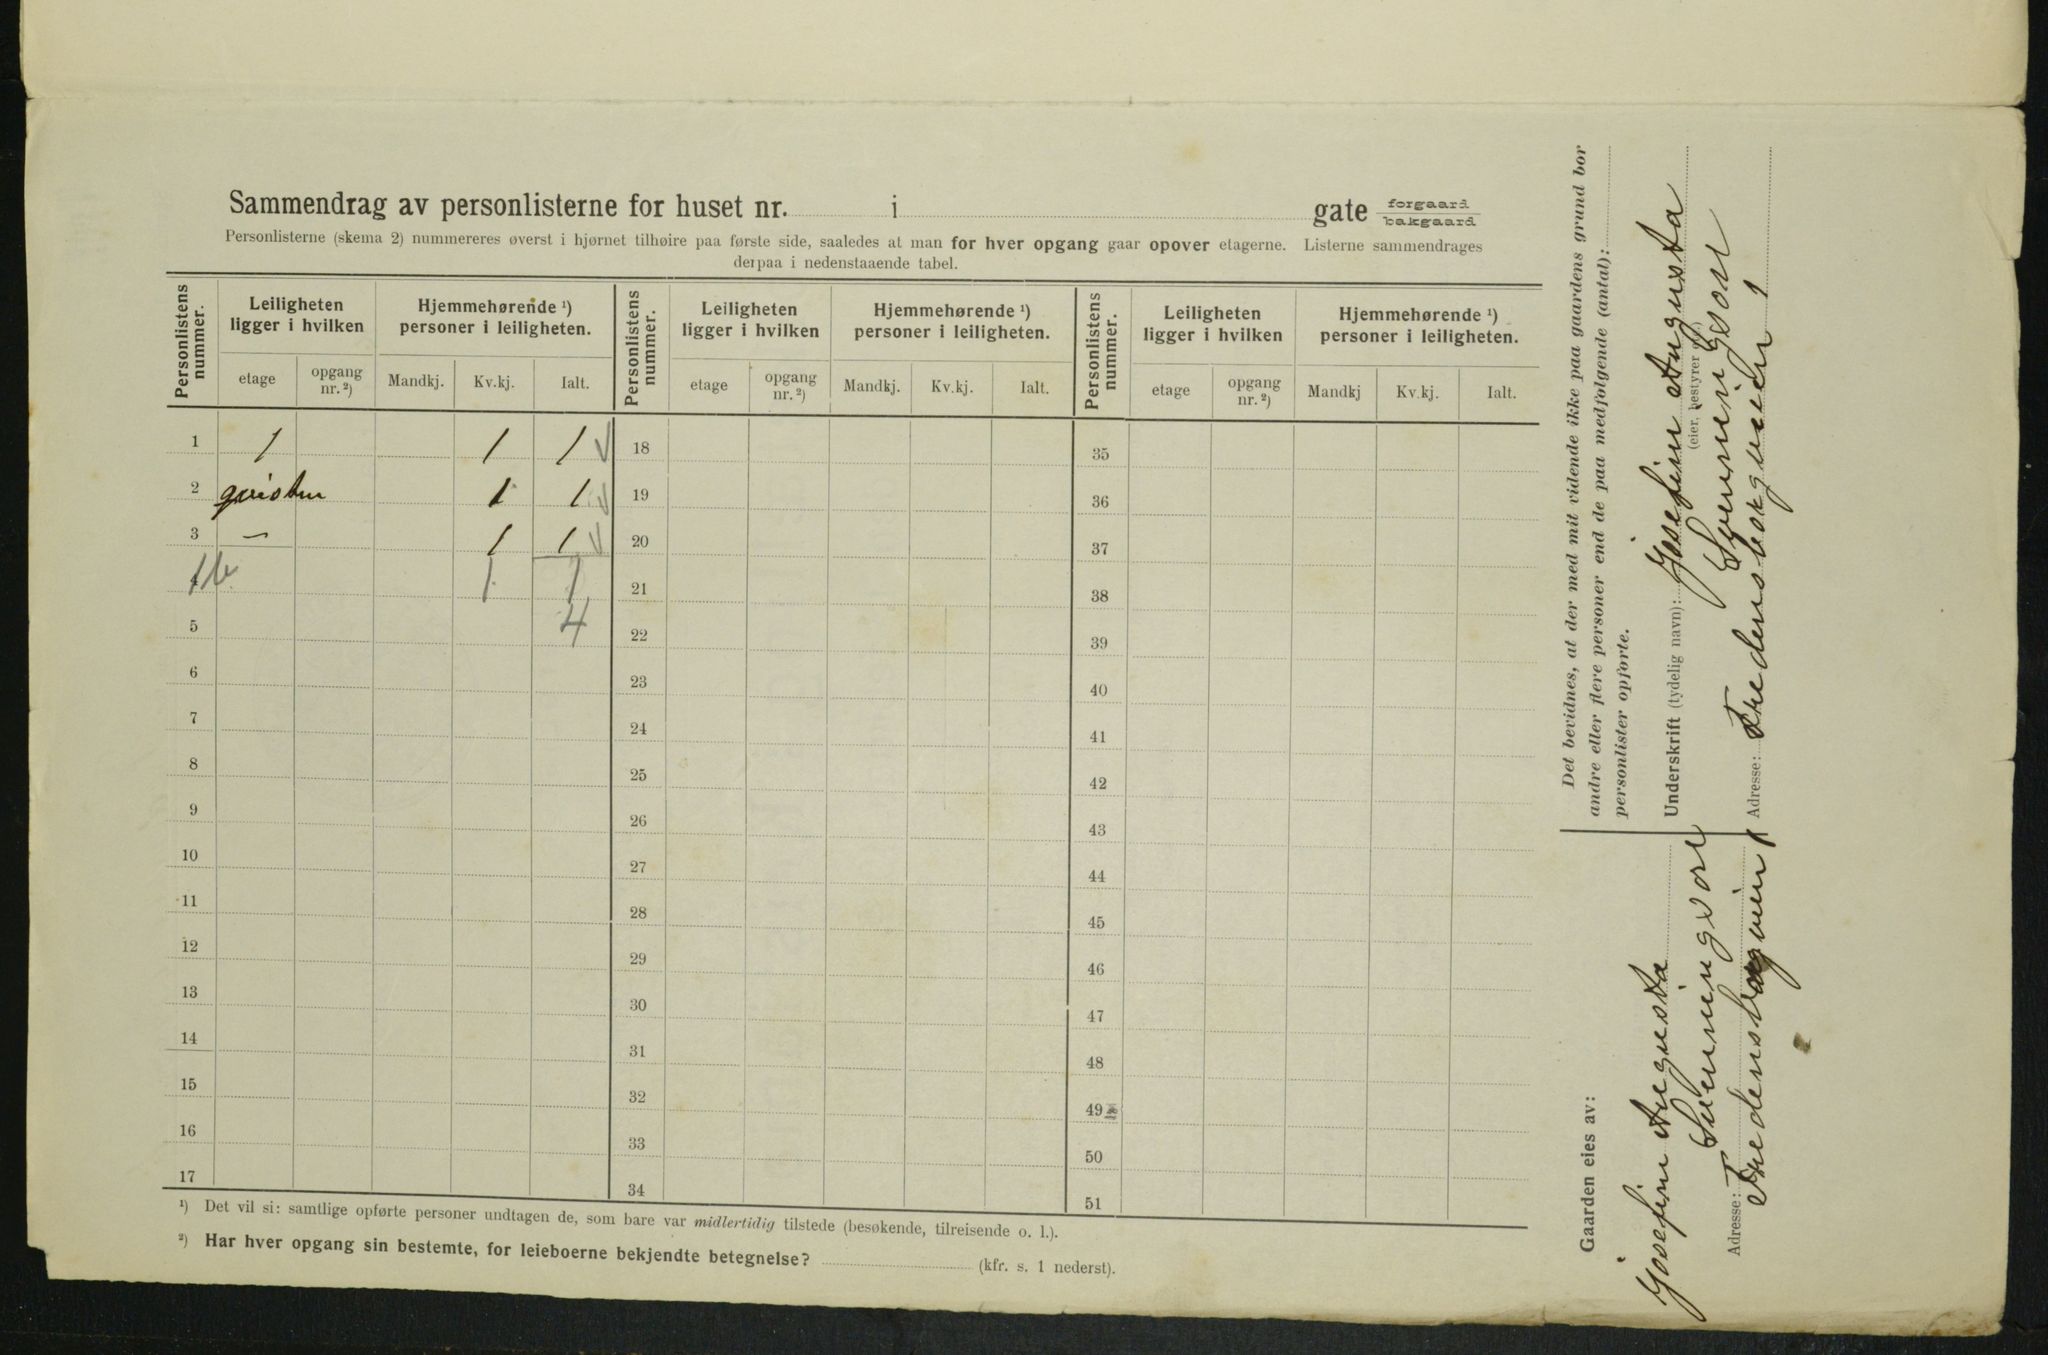 Sammendrag av personlisterne for huset nr. i gate forgaard bakgaard
Personlisterne (skema 2) nummereres øverst i hjørnet tilhøire paa første side, saaledes at man for hver opgang gaar opover etagerne. Listerne sammendrages
derpaa i nedenstaaende tabel.
Personlistens nummer. Leiligheten ligger i hvilken Hjemmehørende ¹) personer i leiligheten. Personlistens nummer. Leiligheten ligger i hvilken Hjemmehørende ¹) personer i leiligheten. Personlistens nummer. Leiligheten ligger i hvilken Hjemmehørende ¹) personer i leiligheten.
etage opgang nr. ²) Mandkj. Kv.kj. Ialt. etage opgang nr. ²) Mandkj. Kv.kj. Ialt. etage opgang nr. ²) Mandkj Kv.kj. Ialt.
1 1 1 1 18 35
2 qvisten 1 1 19 36
3 – 1 1 20 37
1b 1 1 21 38
5 4 22 39
6 23 40
7 24 41
8 25 42
9 26 43
10 27 44
11 28 45
12 29 46
13 30 47
14 31 48
15 32 49
16 33 50
17 34 51
¹) Det vil si: samtlige opførte personer undtagen de, som bare var midlertidig tilstede (besøkende, tilreisende o. l.).
²) Har hver opgang sin bestemte, for leieboerne bekjendte betegnelse? (kfr. s. 1 nederst).
Det bevidnes, at der med mit vidende ikke paa gaardens grund bor
andre eller flere personer end de paa medfølgende (antal):
personlister opførte.
Underskrift (tydelig navn): Josefin Augusta
(eier, bestyrer
Svenningson
Adresse: Fredensborgveien 1
Gaarden eies av:
Josefin Augusta
Svenningson
Adresse: Fredensborgveien 1